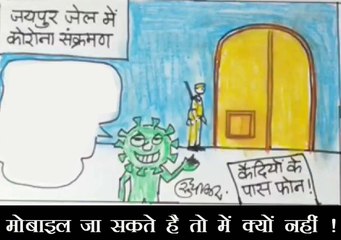 जयपुर जेल में
कोरोना संक्रमण
सुधाकर
कैदियों के
पास फोन!
मोबाइल जा सकते है तो में क्यों नहीं !